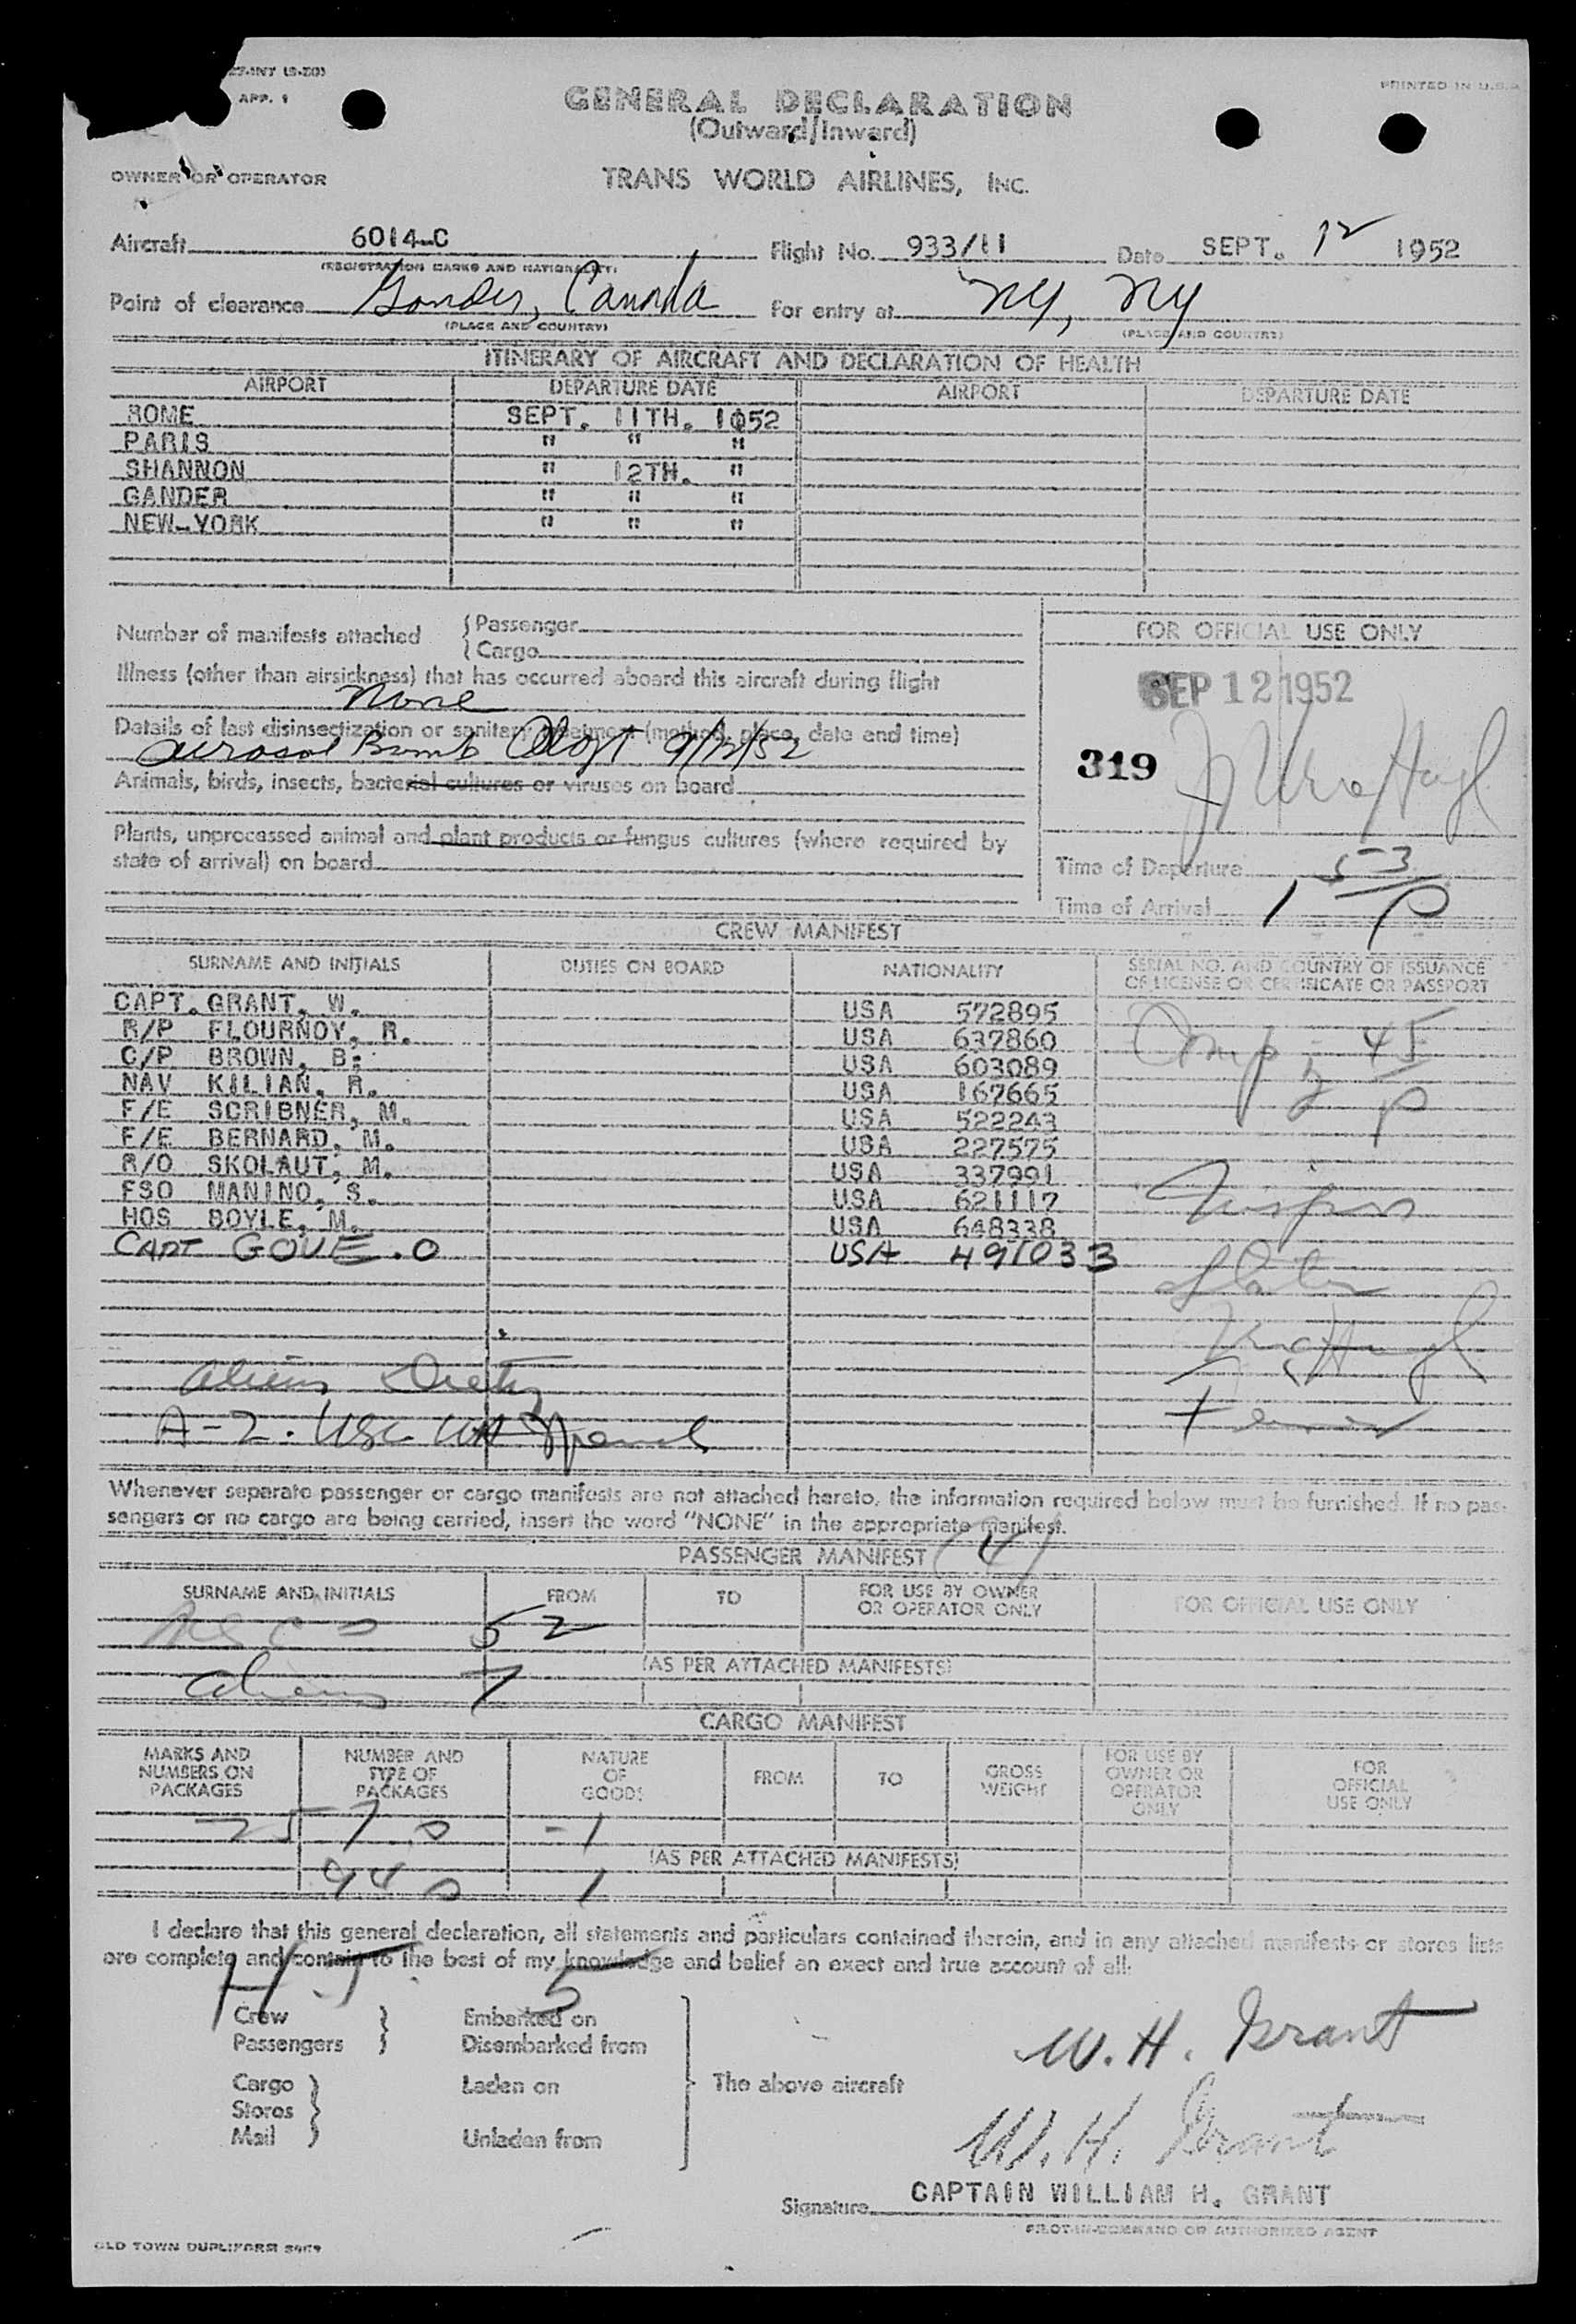 APP. 1
PRINTED IN U.S.A.
GENERAL DECLARATION
(Outward/Inward)
OWNER OR OPERATOR
TRANS WORLD AIRLINES, INC.
Aircraft 6014-C Flight No. 933/11 Date SEPT. 12 1952
(REGISTRATION MARKS AND NATIONALITY)
Point of clearance Gander, Canada For entry at NY, NY
(PLACE AND COUNTRY) (PLACE AND COUNTRY)
ITINERARY OF AIRCRAFT AND DECLARATION OF HEALTH
AIRPORT DEPARTURE DATE AIRPORT DEPARTURE DATE
ROME SEPT. 11TH. 1952
PARIS " " "
SHANNON " 12TH. "
GANDER " " "
NEW-YORK " " "
Number of manifests attached { Passenger
{ Cargo
FOR OFFICIAL USE ONLY
Illness (other than airsickness) that has occurred aboard this aircraft during flight
None
SEP 12 1952
Details of last disinsectization or sanitary treatment (method, place, date and time)
Aerosol Bomb 9/12/52
319
Animals, birds, insects, bacterial cultures or viruses on board
Plants, unprocessed animal and plant products or fungus cultures (where required by
state of arrival) on board
Time of Departure
Time of Arrival 1 53 P
CREW MANIFEST
SURNAME AND INITIALS DUTIES ON BOARD NATIONALITY SERIAL NO. AND COUNTRY OF ISSUANCE
OF LICENSE OR CERTIFICATE OR PASSPORT
CAPT. GRANT, W. USA 572895
R/P FLOURNOY, R. USA 637860
C/P BROWN, B. USA 603089
NAV KILIAN, R. USA 167665
F/E SCRIBNER, M. USA 522243
F/E BERNARD, M. USA 227575
R/O SKOLAUT, M. USA 337991
FSO MANINO, S. USA 621117
HOS BOYLE, M. USA 648338
CAPT GOVE. O USA 491033
Comp 2 45 P
Aliens Dietz
A-2. USC
Whenever separate passenger or cargo manifests are not attached hereto, the information required below must be furnished. If no pas-
sengers or no cargo are being carried, insert the word "NONE" in the appropriate manifest.
PASSENGER MANIFEST (4)
SURNAME AND INITIALS FROM TO FOR USE BY OWNER OR OPERATOR ONLY FOR OFFICIAL USE ONLY
52
(AS PER ATTACHED MANIFESTS)
Aliens 7
CARGO MANIFEST
MARKS AND NUMBERS ON PACKAGES NUMBER AND TYPE OF PACKAGES NATURE OF GOODS FROM TO GROSS WEIGHT FOR USE BY OWNER OR OPERATOR ONLY FOR OFFICIAL USE ONLY
(AS PER ATTACHED MANIFESTS)
I declare that this general declaration, all statements and particulars contained therein, and in any attached manifests or stores lists
are complete and contain to the best of my knowledge and belief an exact and true account of all:
Crew } Embarked on
Passengers } Disembarked from
W. H. Grant
Cargo } Laden on The above aircraft
Stores }
Mail } Unladen from
W. H. Grant
Signature CAPTAIN WILLIAM H. GRANT
PILOT-IN-COMMAND OR AUTHORIZED AGENT
OLD TOWN DUPLIFORM